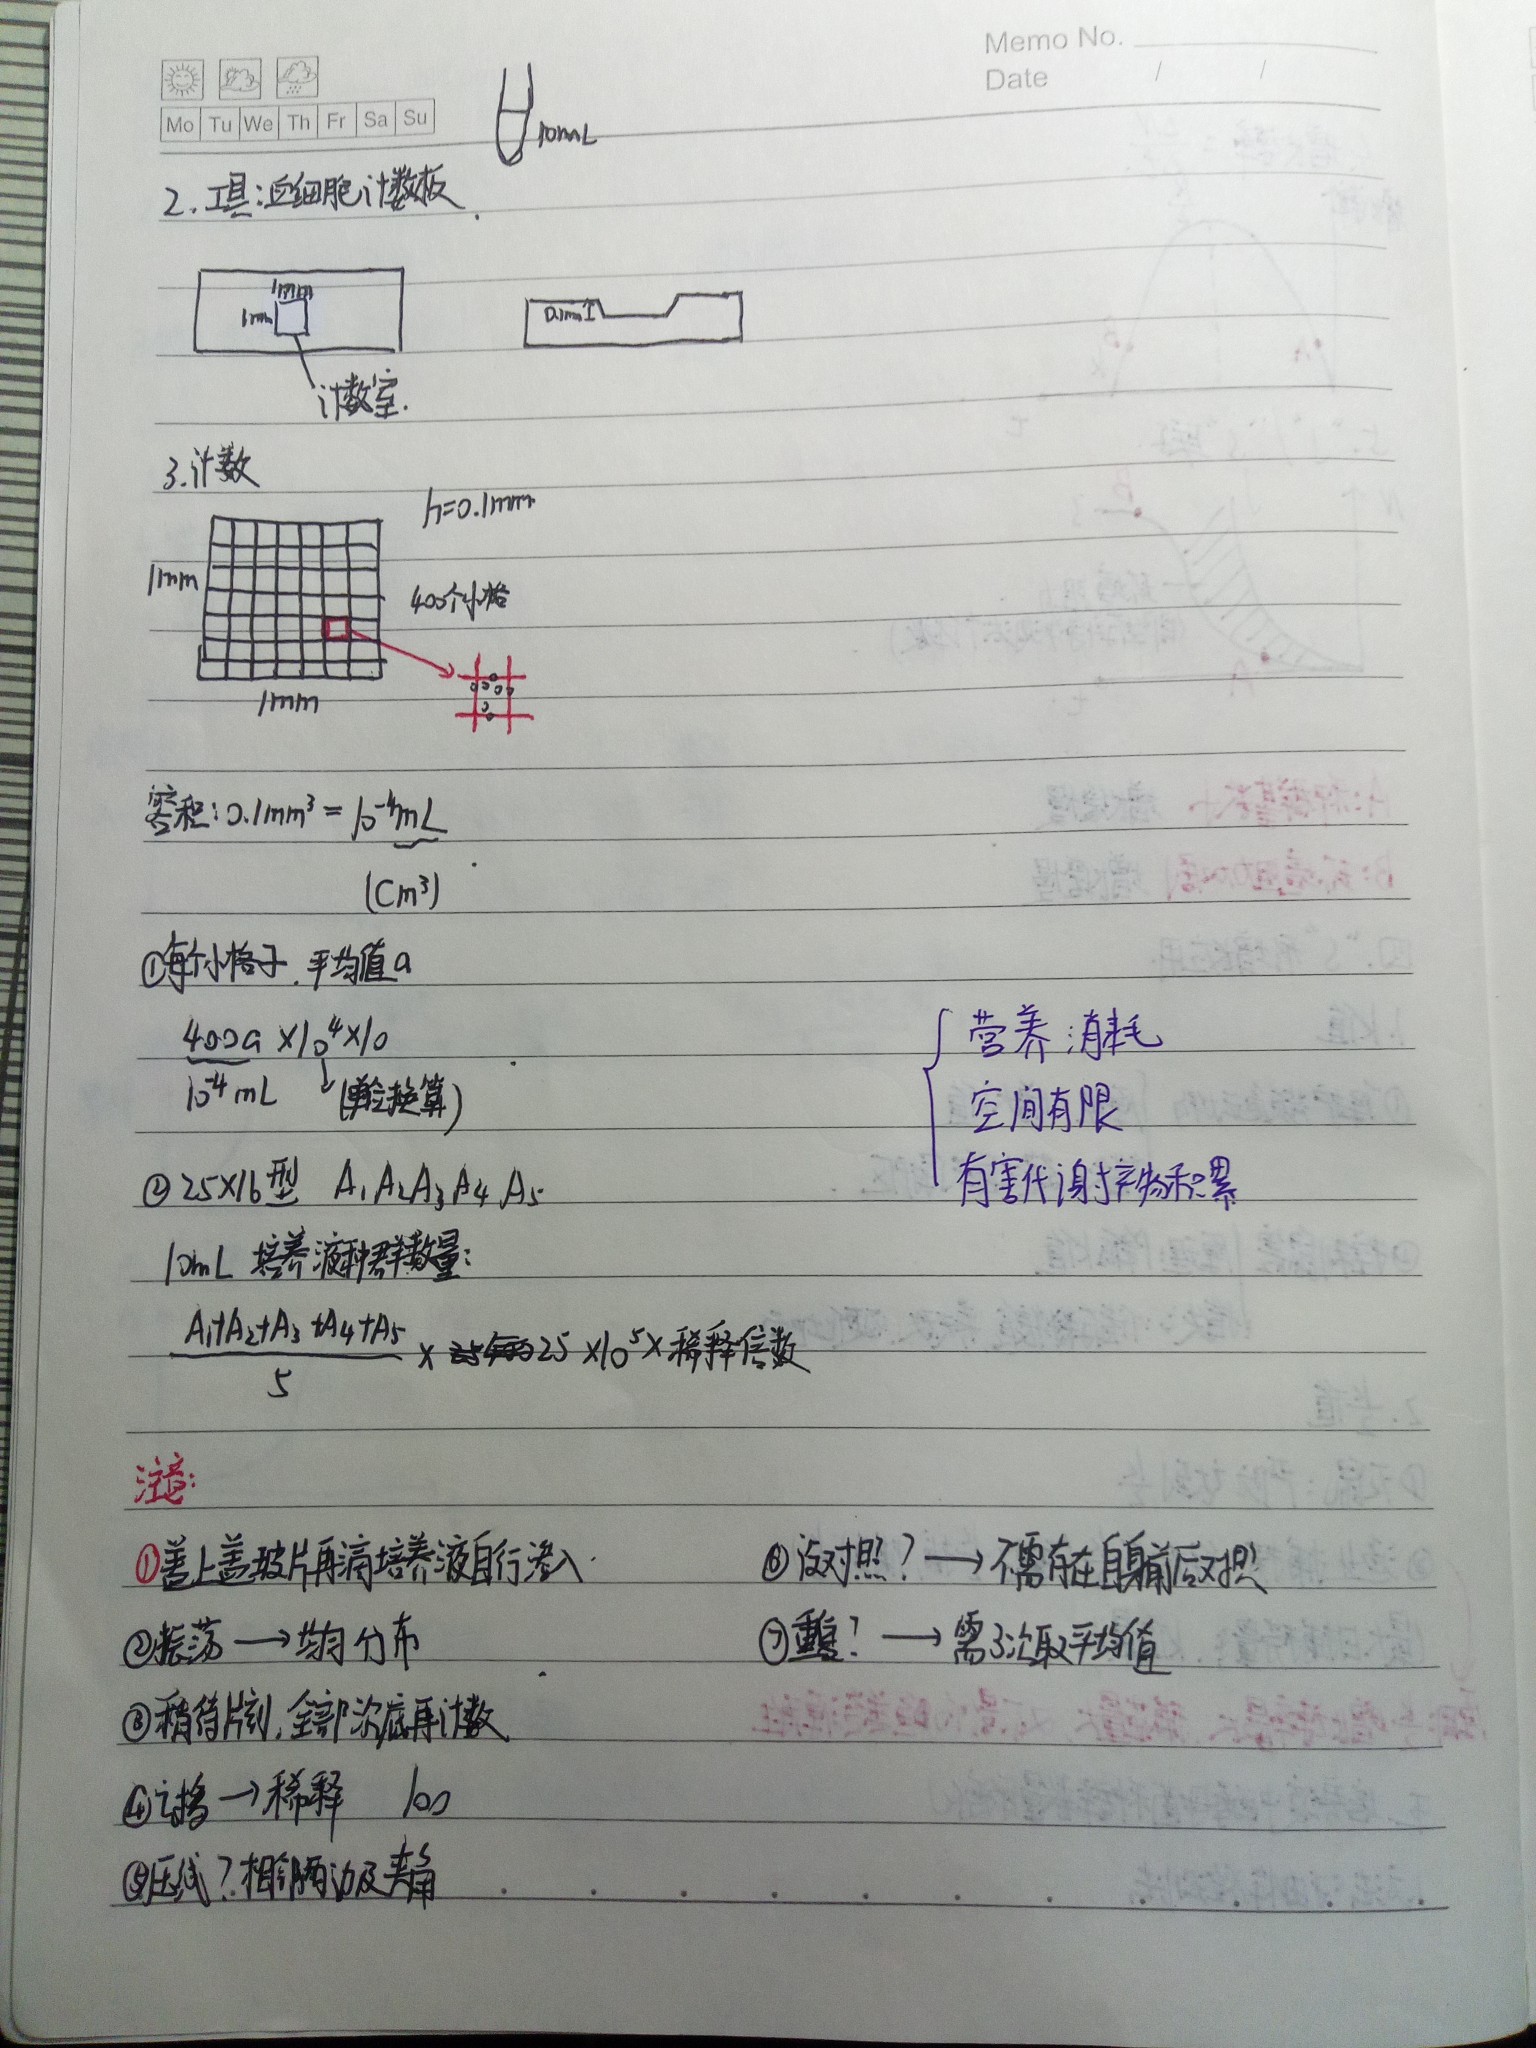 Memo No.
Date / /
Mo Tu We Th Fr Sa Su
10mL
2. 工具:血细胞计数板
1mm
1mm
0.1mm
计数室.
3.计数
h=0.1mm
1mm
400个小格
1mm
容积:0.1mm³=10⁻⁴mL
(Cm³)
①每个小格子.平均值a
400a×10⁴×10
10⁻⁴mL (单位换算)
营养消耗
空间有限
有害代谢产物积累
②25×16型 A₁A₂A₃A₄A₅
10mL培养液种群数量:
A₁+A₂+A₃+A₄+A₅
5
×25×10⁵×稀释倍数
注意:
①盖上盖玻片再滴培养液自行渗入.
②振荡→均匀分布
③稍待片刻,全部沉底再计数
④→稀释 100
⑤压线?相邻两边及夹角
⑥设对照?→不需 存在自身前后对照
⑦重复?→需3次取平均值